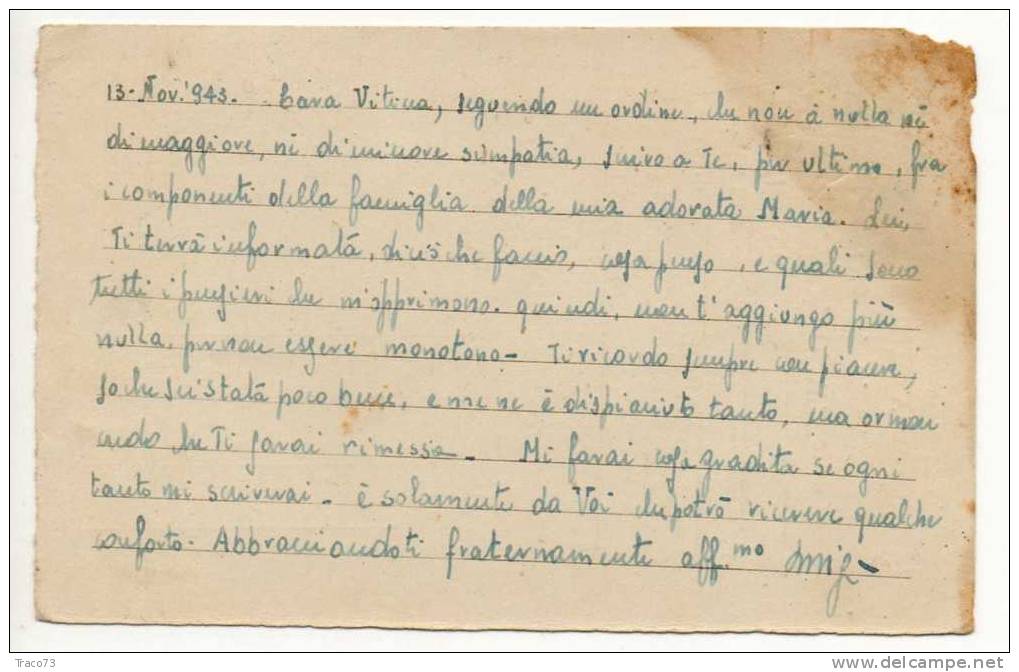 13-Nov.'943. Cara Vitina, seguendo un ordine, che non à nulla nè
di maggiore, nè di minore simpatia, scrivo a Te, per ultimo, fra
i componenti della famiglia della mia adorata Maria. Lei,
Ti terrà informata, di ciò che faccio, cosa penso, e quali sono
tutti i pensieri che m'opprimono. quindi, non t'aggiungo più
nulla, per non essere monotono- Ti ricordo sempre con piacere,
so che sei stata poco bene, e me ne è dispiaciuto tanto, ma ormai
credo che Ti sarai rimessa- Mi farai cosa gradita se ogni
tanto mi scriverai- è solamente da Voi che potrò ricevere qualche
conforto. Abbracciandoti fraternamente aff.mo
Traco73
www.delcampe.net